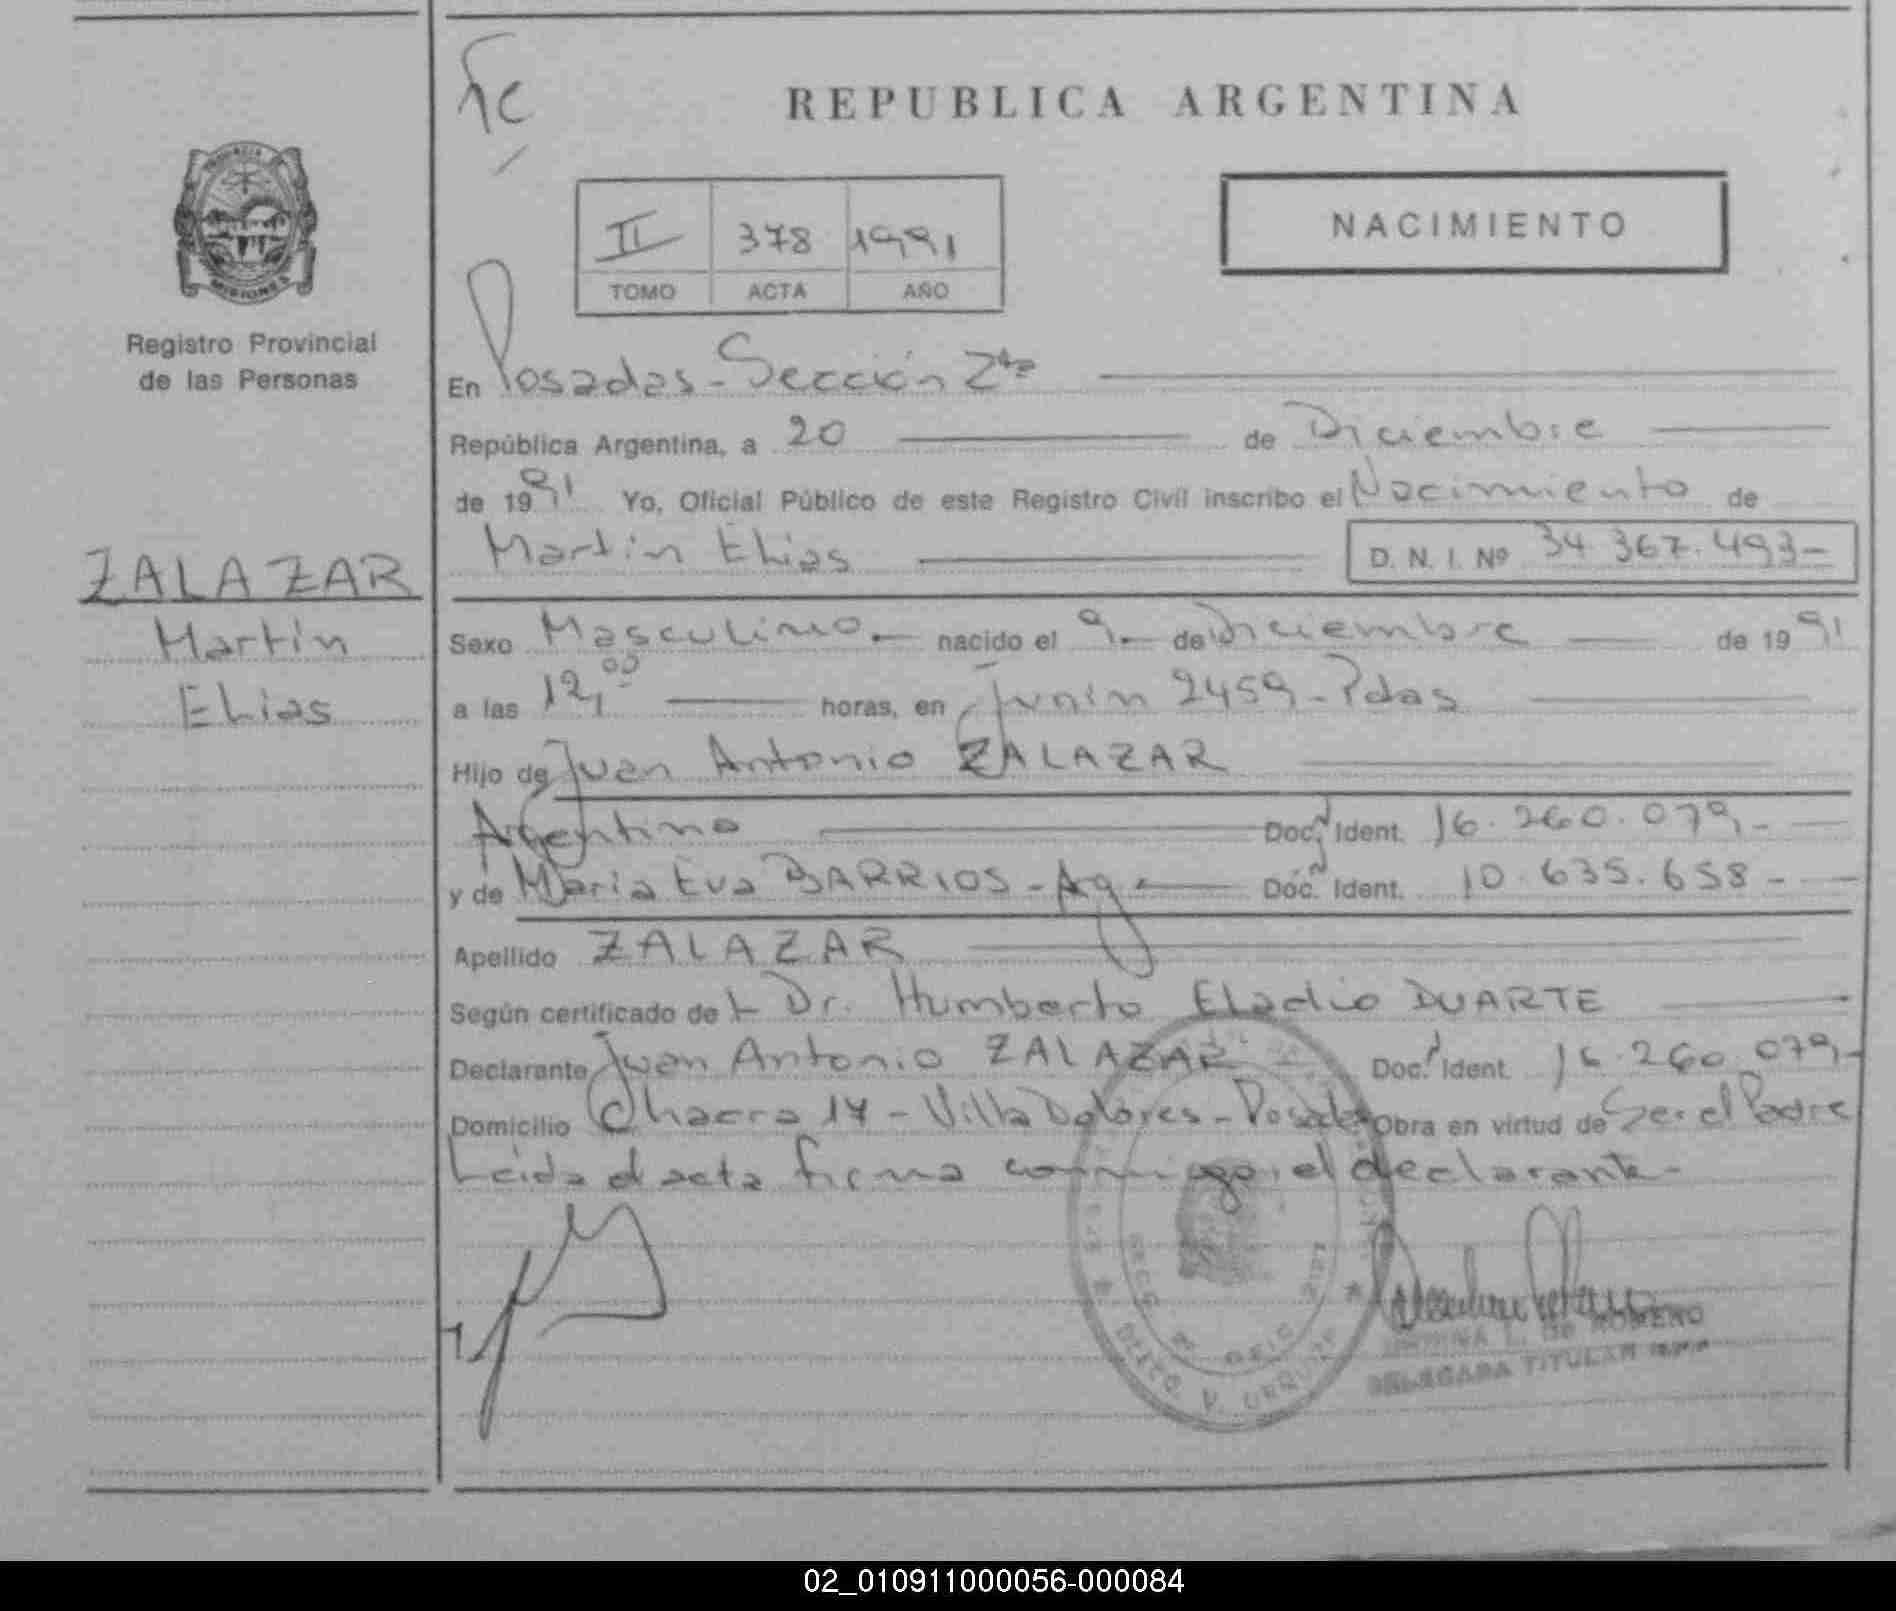 REPUBLICA ARGENTINA
NACIMIENTO
II 378 1991
TOMO ACTA AÑO
MISIONES
Registro Provincial
de las Personas
ZALAZAR
Martín
Elias
En Posadas - Sección 2da
República Argentina, a 20 de Diciembre
de 1991 Yo, Oficial Público de este Registro Civil inscribo el Nacimiento de
Martín Elias D. N. I. Nº 34.367.493-
Sexo Masculino.- nacido el 9.- de Diciembre de 1991
a las 12,00 horas, en Junín 2459 - Pdas
Hijo de Juan Antonio ZALAZAR
Argentino Doc. Ident. 16.260.079.-
y de María Eva BARRIOS - Arg - Doc. Ident. 10.635.658 -
Apellido ZALAZAR
Según certificado del Dr. Humberto Eladio DUARTE
Declarante Juan Antonio ZALAZAR - Doc. Ident. 16.260.079.-
Domicilio Chacra 14 - Villa Dolores - Posadas Obra en virtud de Ser el Padre
Leída el acta firma conmigo el declarante -
L. DE ROMERO
DELEGADA TITULAR
02_010911000056-000084